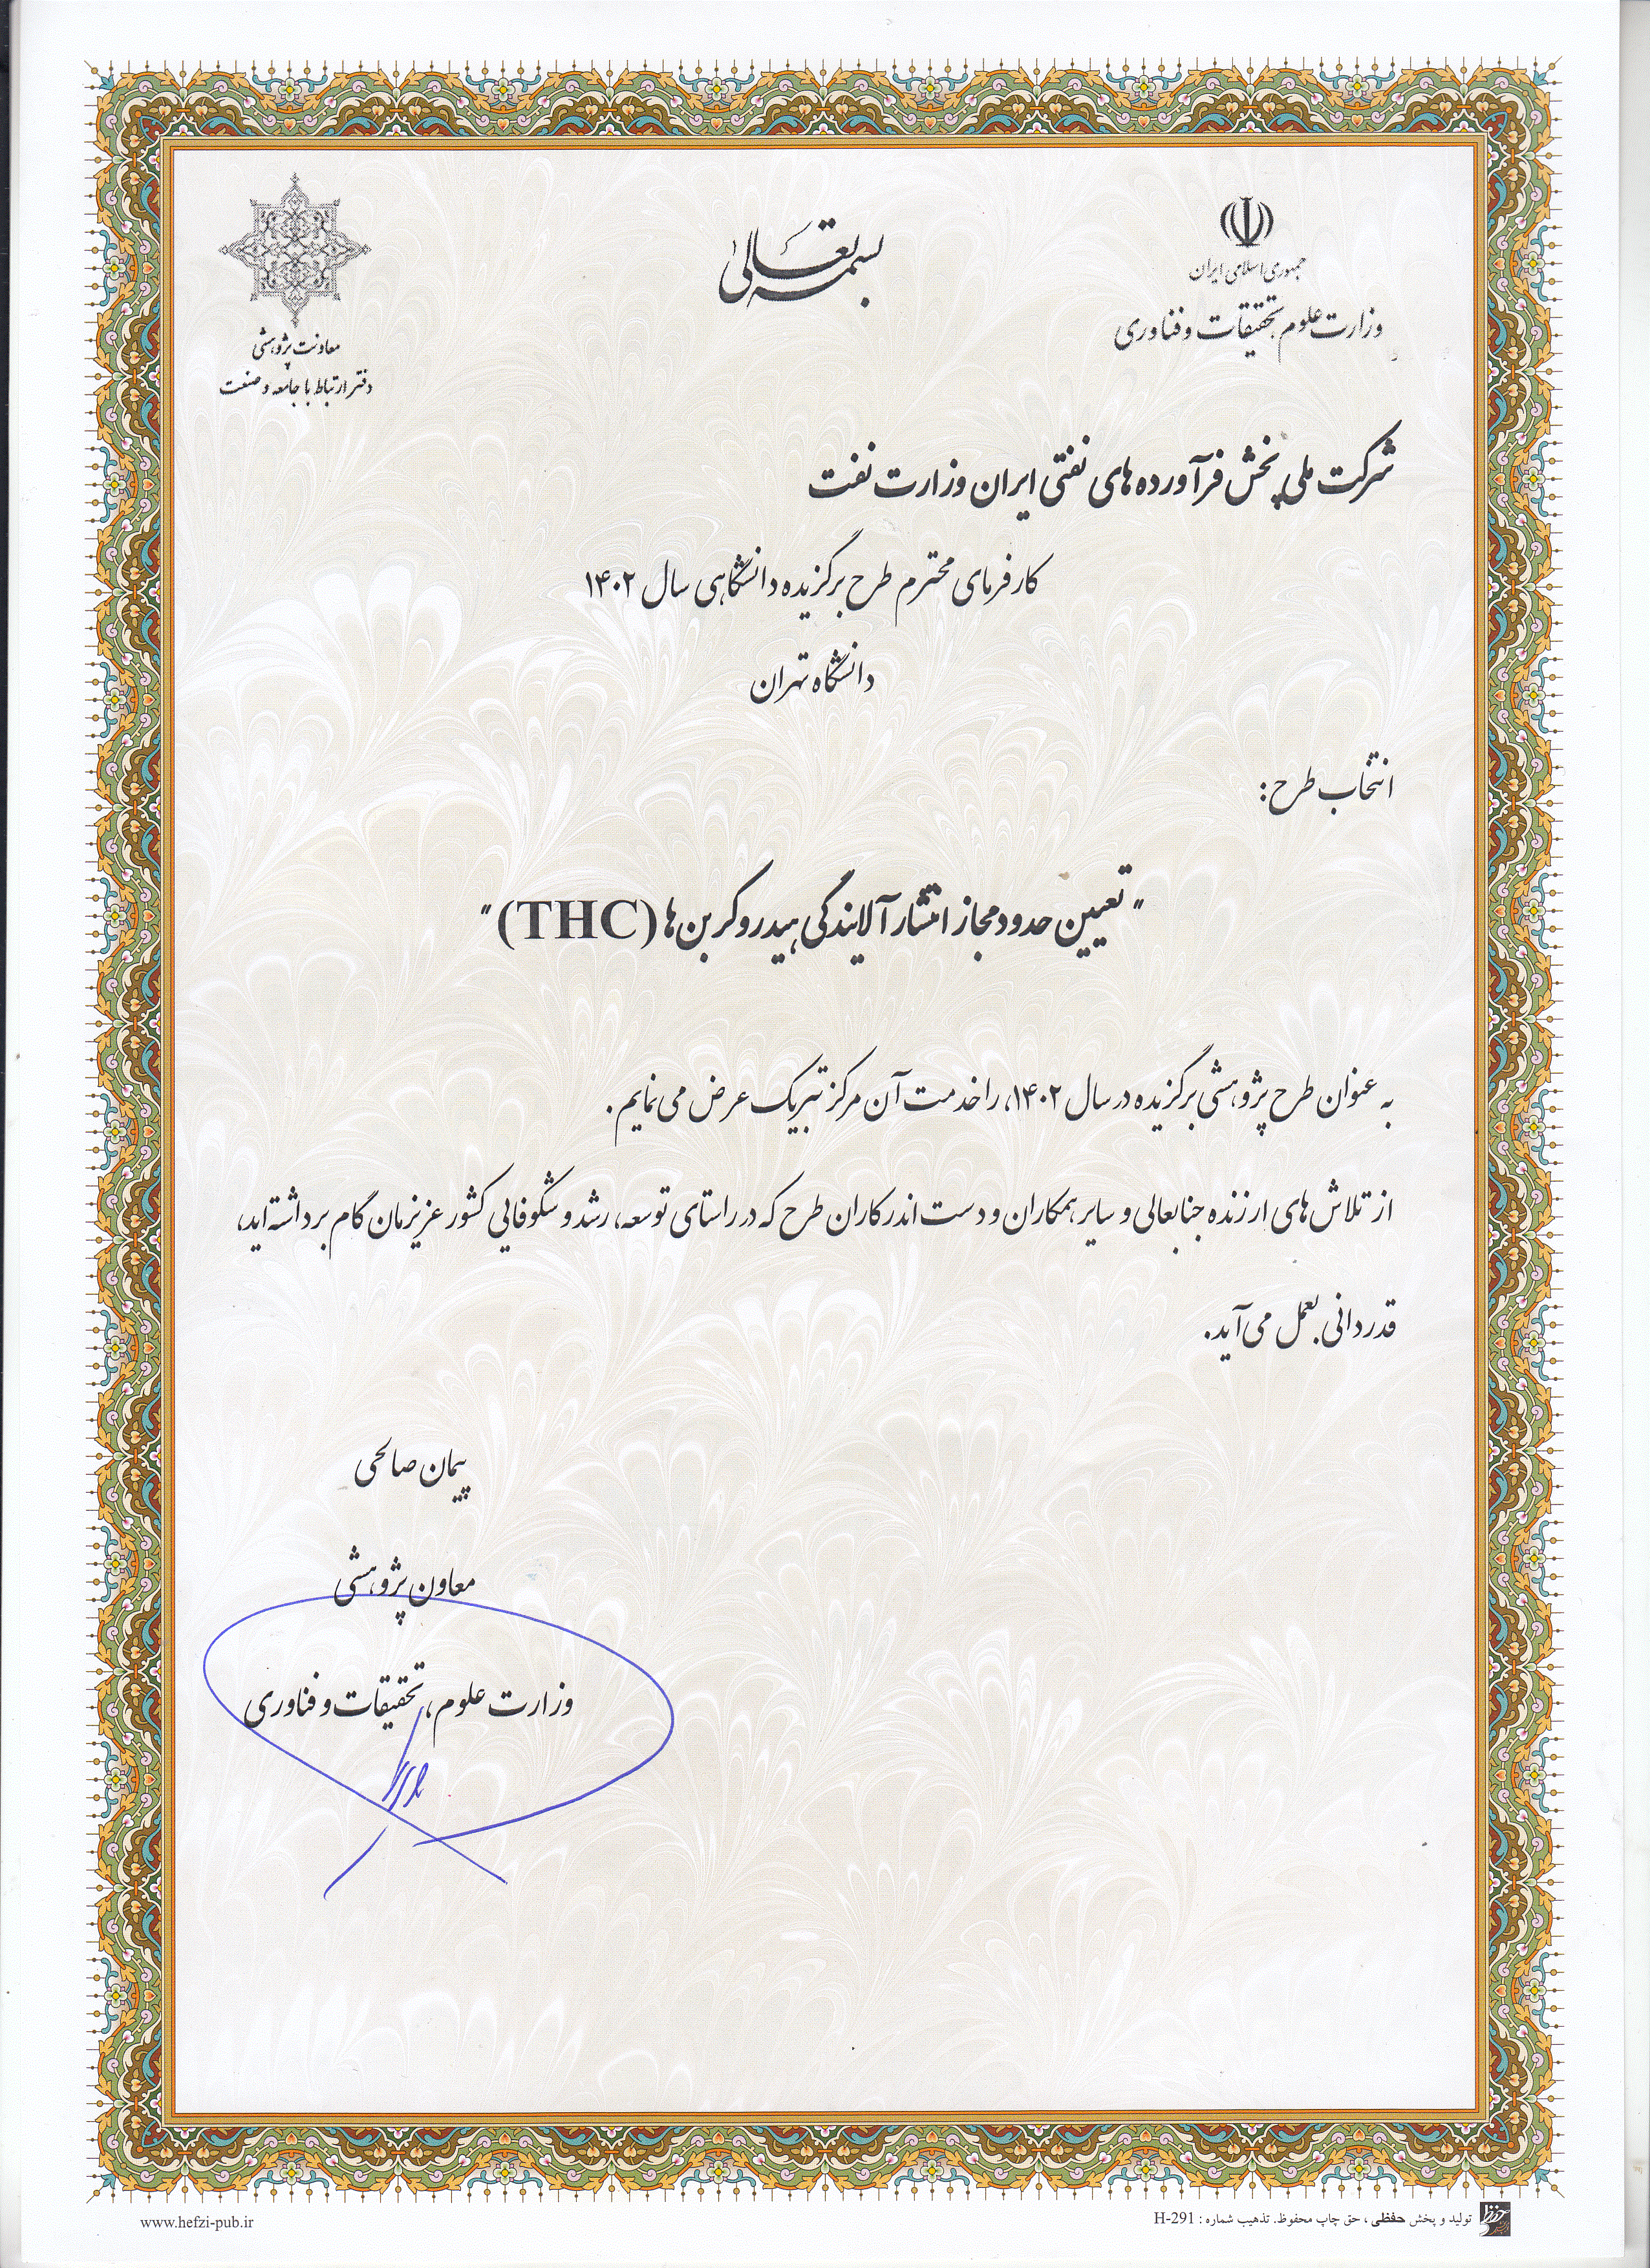 بسمه تعالی
جمهوری اسلامی ایران
وزارت علوم تحقیقات و فناوری
معاونت پژوهشی
دفتر ارتباط با جامعه و صنعت
شرکت ملی پخش فرآورده های نفتی ایران وزارت نفت
کارفرمای محترم طرح برگزیده دانشگاهی سال ۱۴۰۲
دانشگاه تهران
انتخاب طرح:
"تعیین حدود مجاز انتشار آلایندگی هیدروکربن ها (THC)"
به عنوان طرح پژوهشی برگزیده در سال ۱۴۰۲، را خدمت آن مرکز تبریک عرض می نمایم.
از تلاش های ارزنده جنابعالی و سایر همکاران و دست اندرکاران طرح که در راستای توسعه، رشد و شکوفایی کشور عزیزمان گام برداشته اید،
قدردانی بعمل می آید.
پیمان صالحی
معاون پژوهشی
وزارت علوم، تحقیقات و فناوری
تولید و پخش حفظی، حق چاپ محفوظ. تذهیب شماره : H-291
www.hefzi-pub.ir